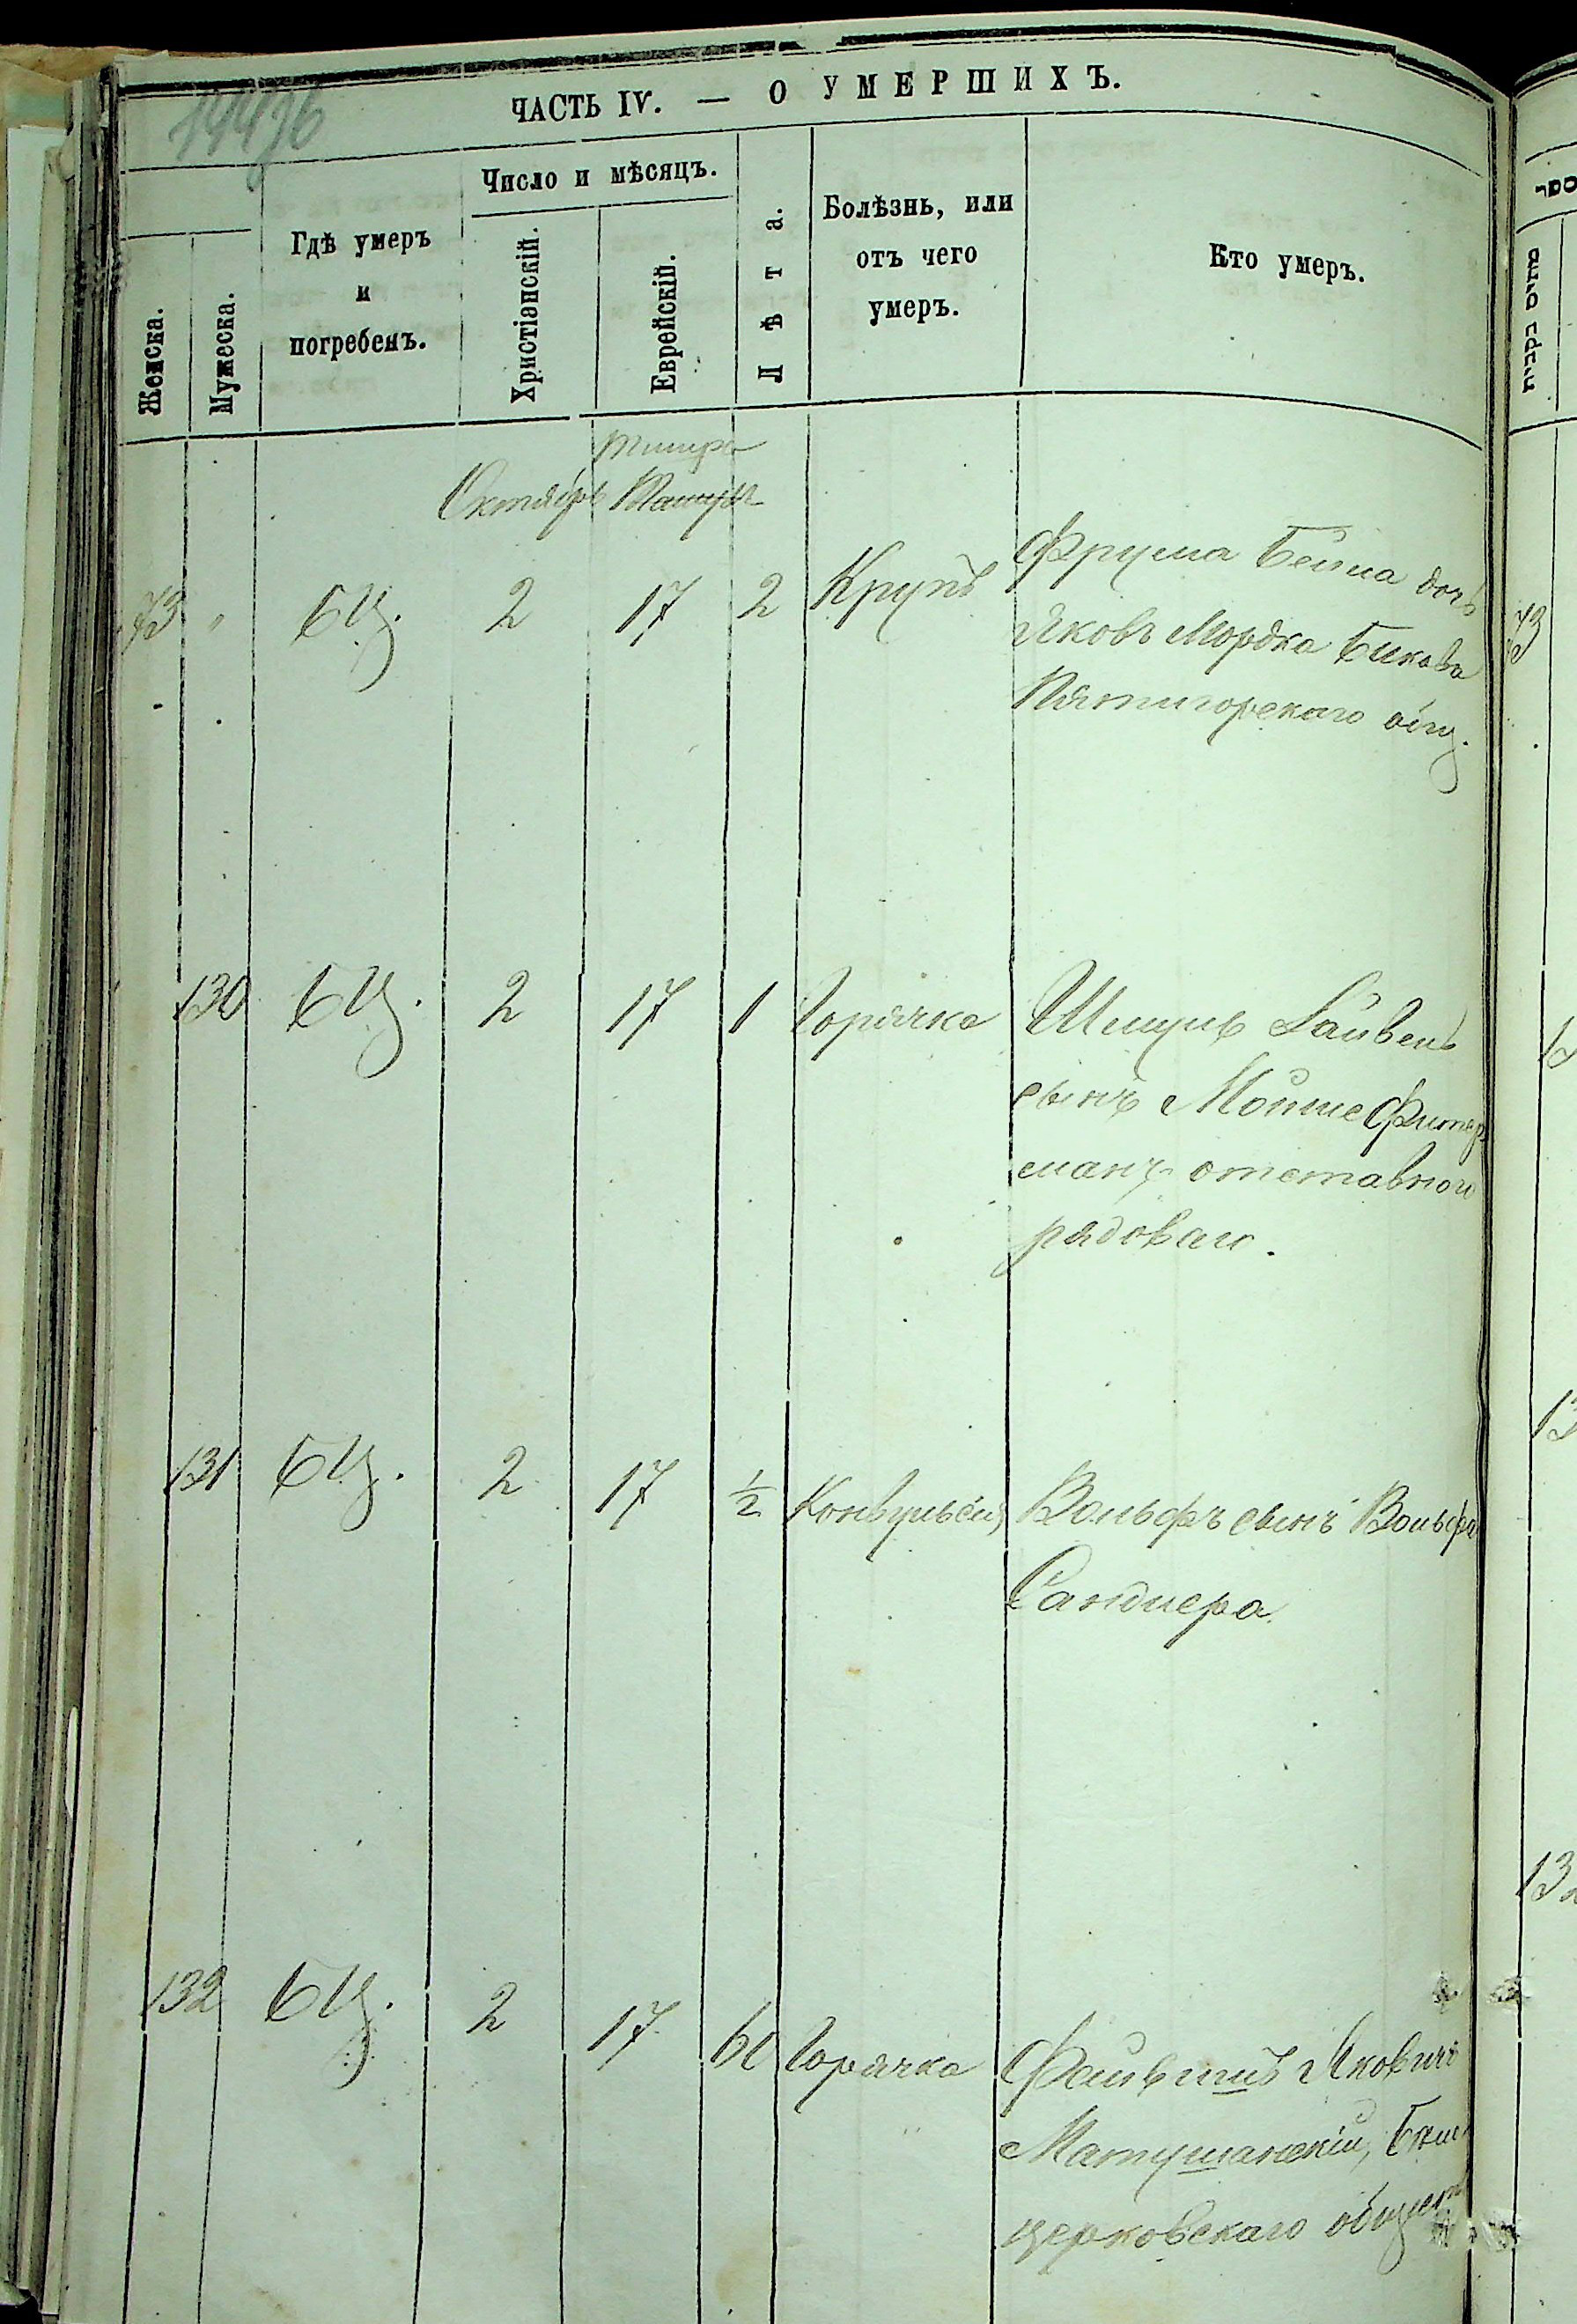 ЧАСТЬ IV. — О УМЕРШИХЪ.
Женска.
Мужеска.
Гдѣ умеръ
и
погребенъ.
Число и мѣсяцъ.
Христіанскій.
Еврейскій.
Лѣта.
Болѣзнь, или
отъ чего
умеръ.
Кто умеръ.
Октябрь
73 " БЦ. 2 17 2 Крупъ Фрума Бейла дочь
Яковъ Мордка Бикова
Пятигорскаго общ.
130 БЦ. 2 17 1 Горячка Шмуль Лайвень
сынъ Мойше Фитер
манъ отставного
рядоваго.
131 БЦ. 2 17 1/2 Конвульсія Вольфъ сынъ Вольфа
Сандлера
132 БЦ. 2 17 60 Горячка Файвишъ Яковичъ
Матушанскій, Бѣло
церковскаго общест
73